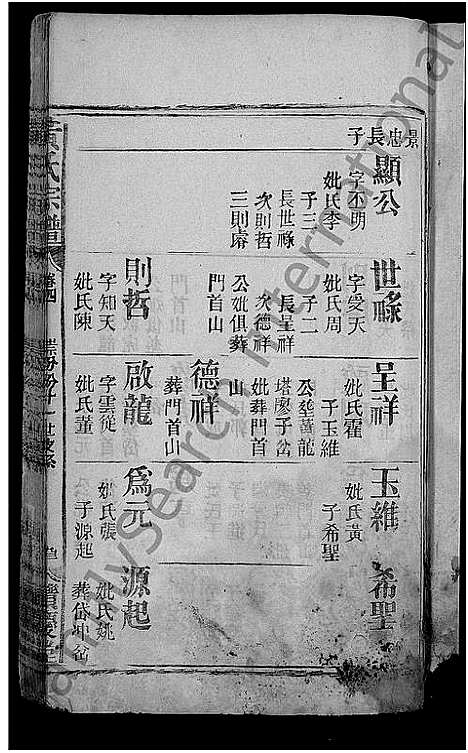 景忠長子
顯公
字丕明
妣氏李
子三
長世祿
次則哲
三則睿
世祿
字受天
妣氏周
子二
長呈祥
次德祥
公妣俱葬
門首山
則哲
字知天
妣氏陳
呈祥
妣氏霍
子玉維
公葬黃龍
塔廖子岔
妣葬門首
山
德祥
葬門首山
啟龍
字雲從
妣氏董
玉維
妣氏黃
子希聖
為元
妣氏張
子源起
希聖
源起
妣氏姚
葬岱冲岔
黃氏宗譜
FamilySearch International